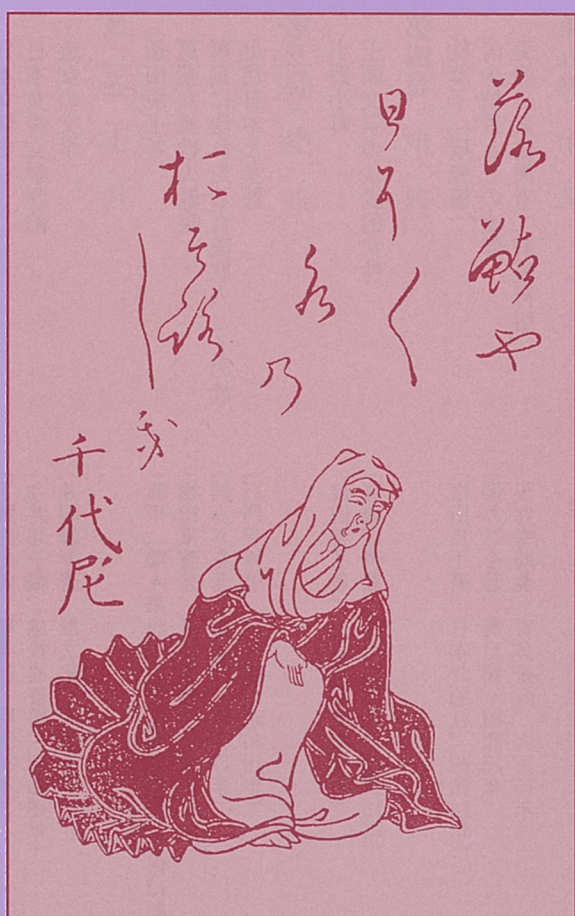 落鮎や
日に〱
水乃
おそろし
き
千代尼